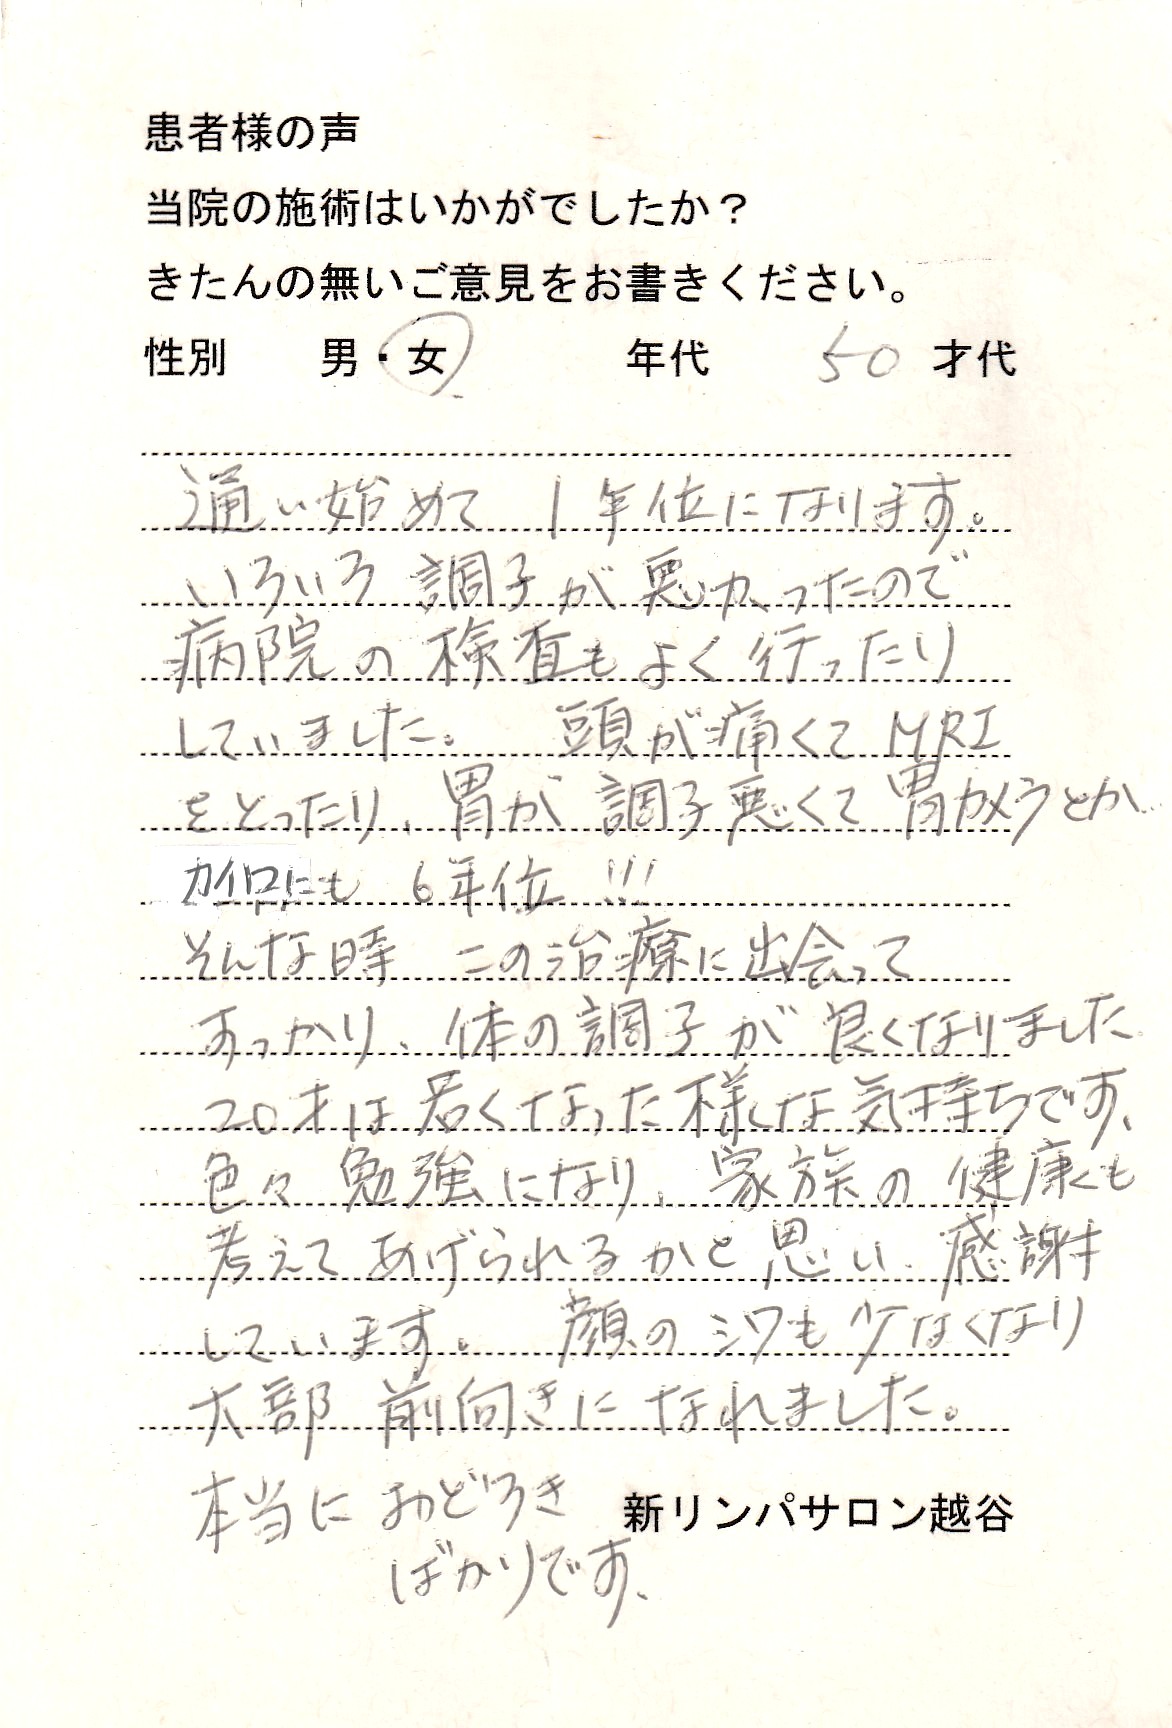 患者様の声
当院の施術はいかがでしたか？
きたんの無いご意見をお書きください。
性別 男・女 年代 50 才代
通い始めて 1年位になります。
いろいろ調子が悪かったので
病院の検査もよく行ったり
していました。 頭が痛くてMRI
をとったり、胃が調子悪くて胃カメラとか
カイロにも 6年位 !!!
そんな時 この治療に出会って
すっかり、体の調子が良くなりました
20才は若くなった様な気持ちです、
色々勉強になり、家族の健康も
考えてあげられるかと思い、感謝
しています。 顔のシワも少なくなり
大部前向きになれました。
本当に おどろき
新リンパサロン越谷
ばかりです、